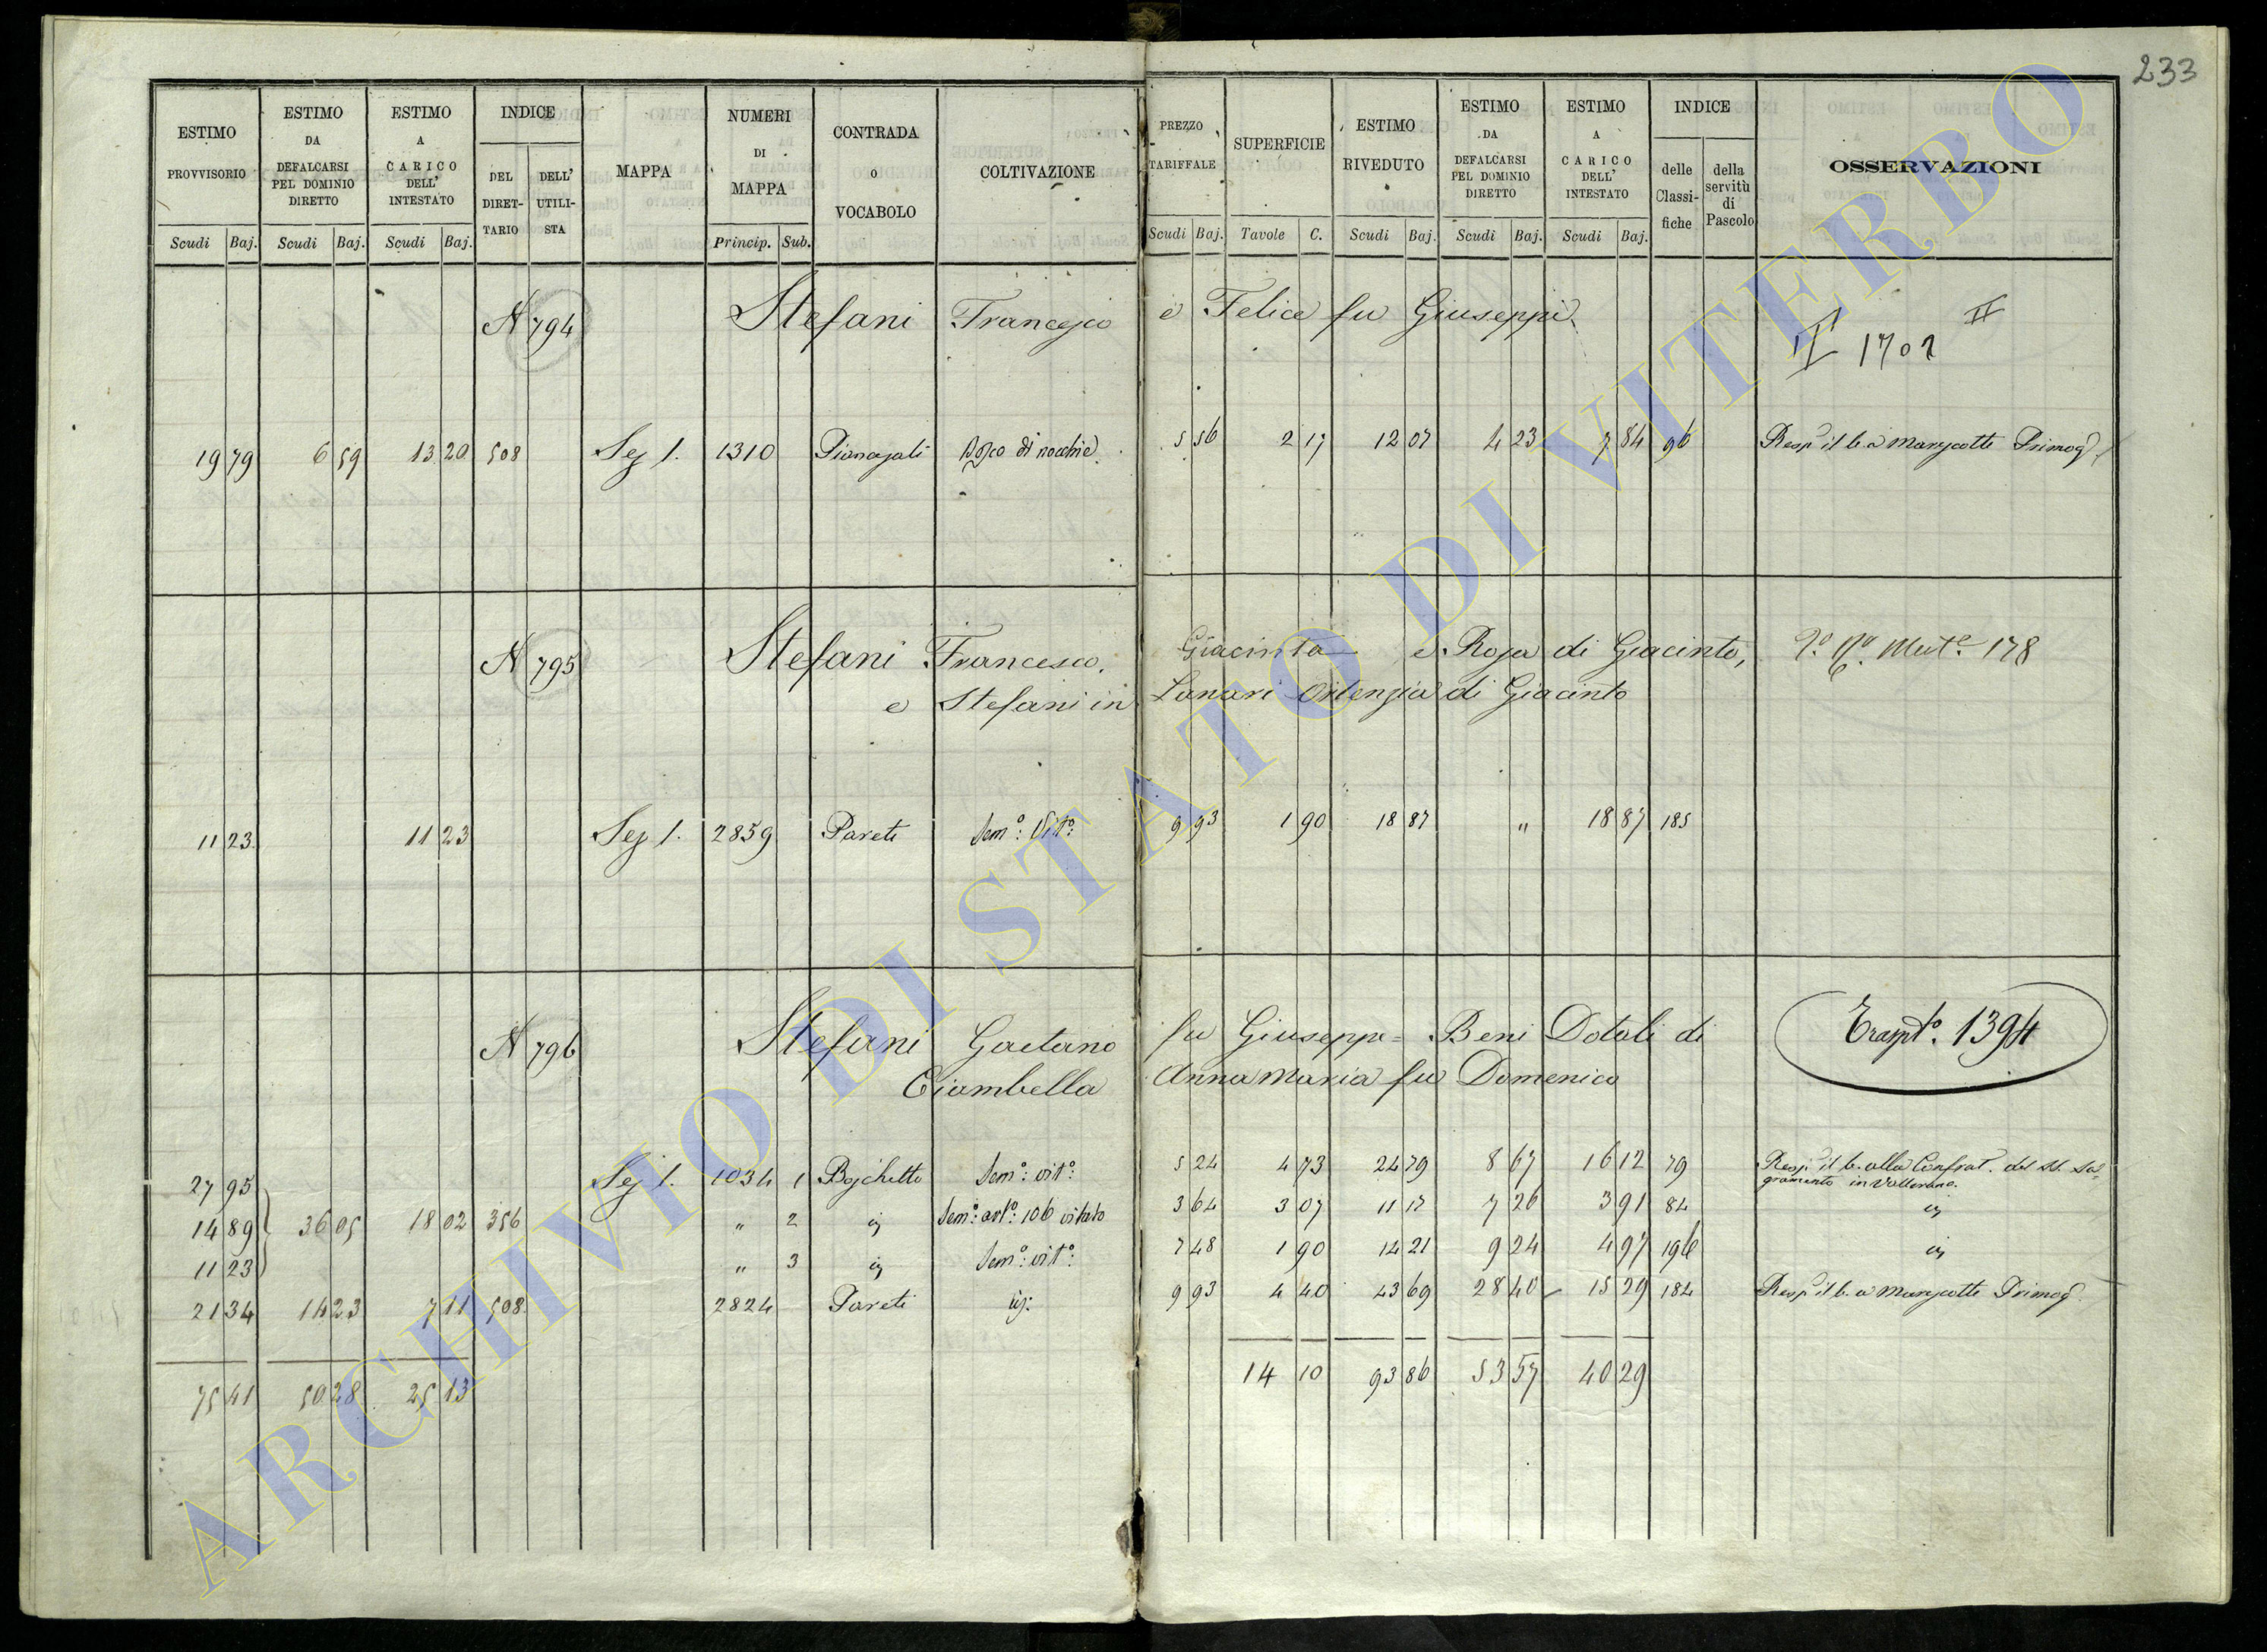 233
ESTIMO PROVVISORIO Scudi Baj.
ESTIMO DA DEFALCARSI PEL DOMINIO DIRETTO Scudi Baj.
ESTIMO A CARICO DELL' INTESTATO Scudi Baj.
INDICE DEL DIRET-TARIO DELL' UTILI-STA
MAPPA
NUMERI DI MAPPA Princip. Sub.
CONTRADA o VOCABOLO
COLTIVAZIONE
PREZZO TARIFFALE Scudi Baj.
SUPERFICIE Tavole C.
ESTIMO RIVEDUTO Scudi Baj.
ESTIMO DA DEFALCARSI PEL DOMINIO DIRETTO Scudi Baj.
ESTIMO A CARICO DELL' INTESTATO Scudi Baj.
INDICE delle Classi-fiche della servitù di Pascolo
OSSERVAZIONI
N 794 Stefani Francesco e Felice fu Giuseppe II
1702
19 79 6 59 13 20 508 Sez 1. 1310 Bosco di nocchie 5 56 2 17 12 07 4 23 7 84 96 Resp il b. a Marescotti Primog
N 795 Stefani Francesco, Giacinta e Rosa di Giacinto, 178
e Stefani in Lanari di Giacinto
11 23 11 23 Sez 1. 2859 Pareti Sem.º Vit.º 9 93 1 90 18 87 " 18 87 185
N 796 Stefani Gaetano fu Giuseppe = Beni Dotali di Trasp.to 1394
Ciambella Anna Maria fu Domenico
27 95 Sez 1. 1034 1 Boschetto Sem.º vit.º 5 24 4 73 24 79 8 67 16 12 79 Resp. il b. alla Confrat. del SS. Sa-
gramento in Vallerano
14 89 36 05 18 02 356 " 2 Sem.º 106 vitato 3 64 3 07 11 17 7 26 3 91 82
11 23 " 3 Sem.º vit.º 7 48 1 90 14 21 9 24 4 97 196
21 34 14 23 7 11 508 2824 Pareti 9 93 4 40 43 69 28 40 15 29 184 Resp il b. a Marescotti Primog.
75 41 50 28 25 13 14 10 93 86 53 57 40 29
ARCHIVIO DI STATO DI VITERBO